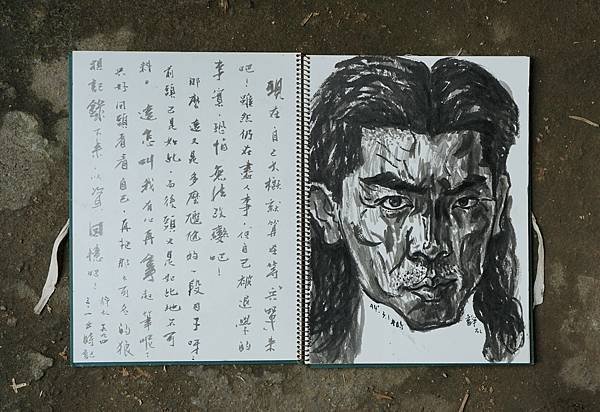 現在自己大概就算是等兵單來
吧！雖然仍在書人事，但自己被退學的
事實，恐怕無法改變吧！
那麼這又是多麼尷尬的一段日子呀！
前頭已是如此，而後頭又是如此地不可
料。這怎叫我有心再拿起筆呢？
只好回頭看看自己，再把那可笑的狼
狽記錄下來，以資回憶吧！